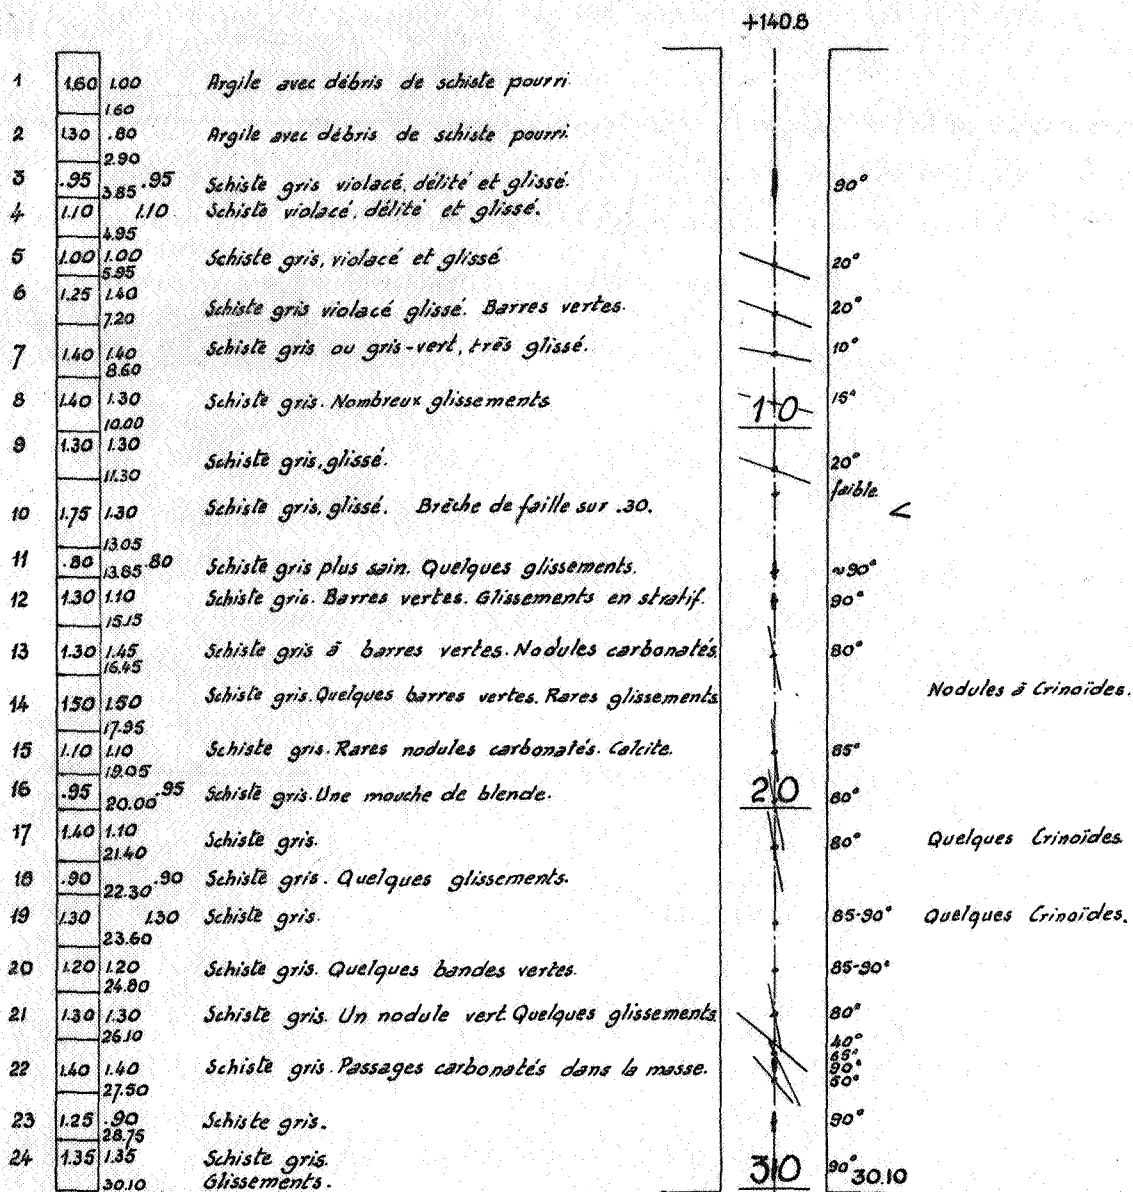 +140.8
1 1.60 1.00 Argile avec débris de schiste pourri
1.60
2 1.30 .80 Argile avec débris de schiste pourri.
2.90
3 .95 .95 Schiste gris violacé, délité et glissé. 90°
3.85
4 1.10 1.10 Schiste violacé, délité et glissé.
4.95
5 1.00 1.00 Schiste gris, violacé et glissé 20°
5.95
6 1.25 1.40 Schiste gris violacé glissé. Barres vertes. 20°
7.20
7 1.40 1.40 Schiste gris ou gris-vert, très glissé. 10°
8.60
8 1.40 1.30 Schiste gris. Nombreux glissements 10 15°
10.00
9 1.30 1.30 Schiste gris, glissé. 20°
11.30
faible
10 1.75 1.30 Schiste gris, glissé. Brèche de faille sur .30. <
13.05
11 .80 .80 Schiste gris plus sain. Quelques glissements. ~90°
13.85
12 1.30 1.10 Schiste gris. Barres vertes. Glissements en stratif. 90°
15.15
13 1.30 1.45 Schiste gris à barres vertes. Nodules carbonatés 80°
16.45
14 1.50 1.50 Schiste gris. Quelques barres vertes. Rares glissements Nodules à Crinoïdes.
17.95
15 1.10 1.10 Schiste gris. Rares nodules carbonatés. Calcite. 85°
19.05
16 .95 .95 Schiste gris. Une mouche de blende. 20 80°
20.00
17 1.40 1.10 Schiste gris. 80° Quelques Crinoïdes
21.40
18 .90 .90 Schiste gris. Quelques glissements.
22.30
19 1.30 1.30 Schiste gris. 85-90° Quelques Crinoïdes.
23.60
20 1.20 1.20 Schiste gris. Quelques bandes vertes. 85-90°
24.80
21 1.30 1.30 Schiste gris. Un nodule vert Quelques glissements 80°
26.10
40°
65°
22 1.40 1.40 Schiste gris. Passages carbonatés dans la masse. 90°
27.50
23 1.25 .90 Schiste gris. 90°
28.75
24 1.35 1.35 Schiste gris. 30 90° 30.10
30.10 Glissements.